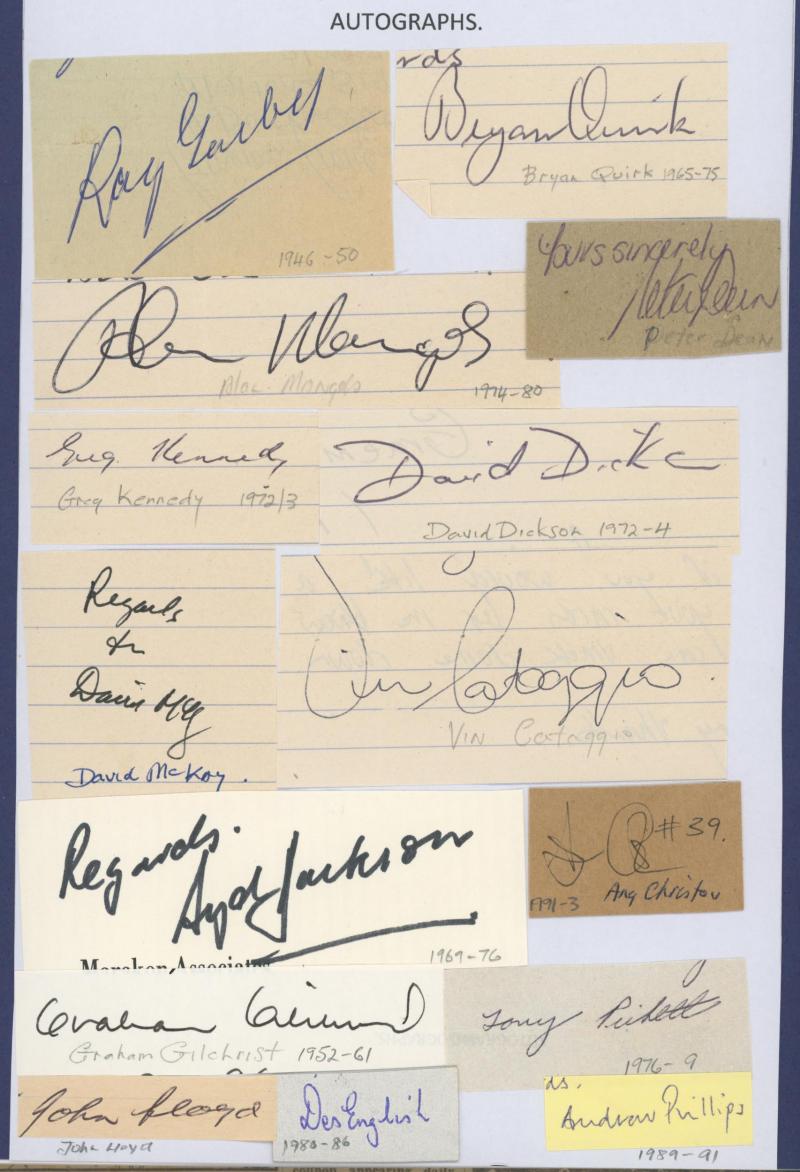 AUTOGRAPHS.
Ray Garby
1946-50
rds
Bryan Quirk
Bryan Quirk 1965-75
Yours sincerely
Peter Dean
Peter Dean
Alan Mangels
Alan Mangels
1974-80
Greg Kennedy
Greg Kennedy 1972/3
David Dickson
David Dickson 1972-4
Regards
David McKay
David McKay.
Vin Catoggio
Vin Catoggio
Regards.
Syd Jackson
Associates
1969-76
#39.
1991-3 Ang Christou
Graham Gilchrist
Graham Gilchrist 1952-61
Tony Pickett
1976-9
John Lloyd
John Lloyd
Des English
1980-86
ds.
Andrew Phillips
1989-91